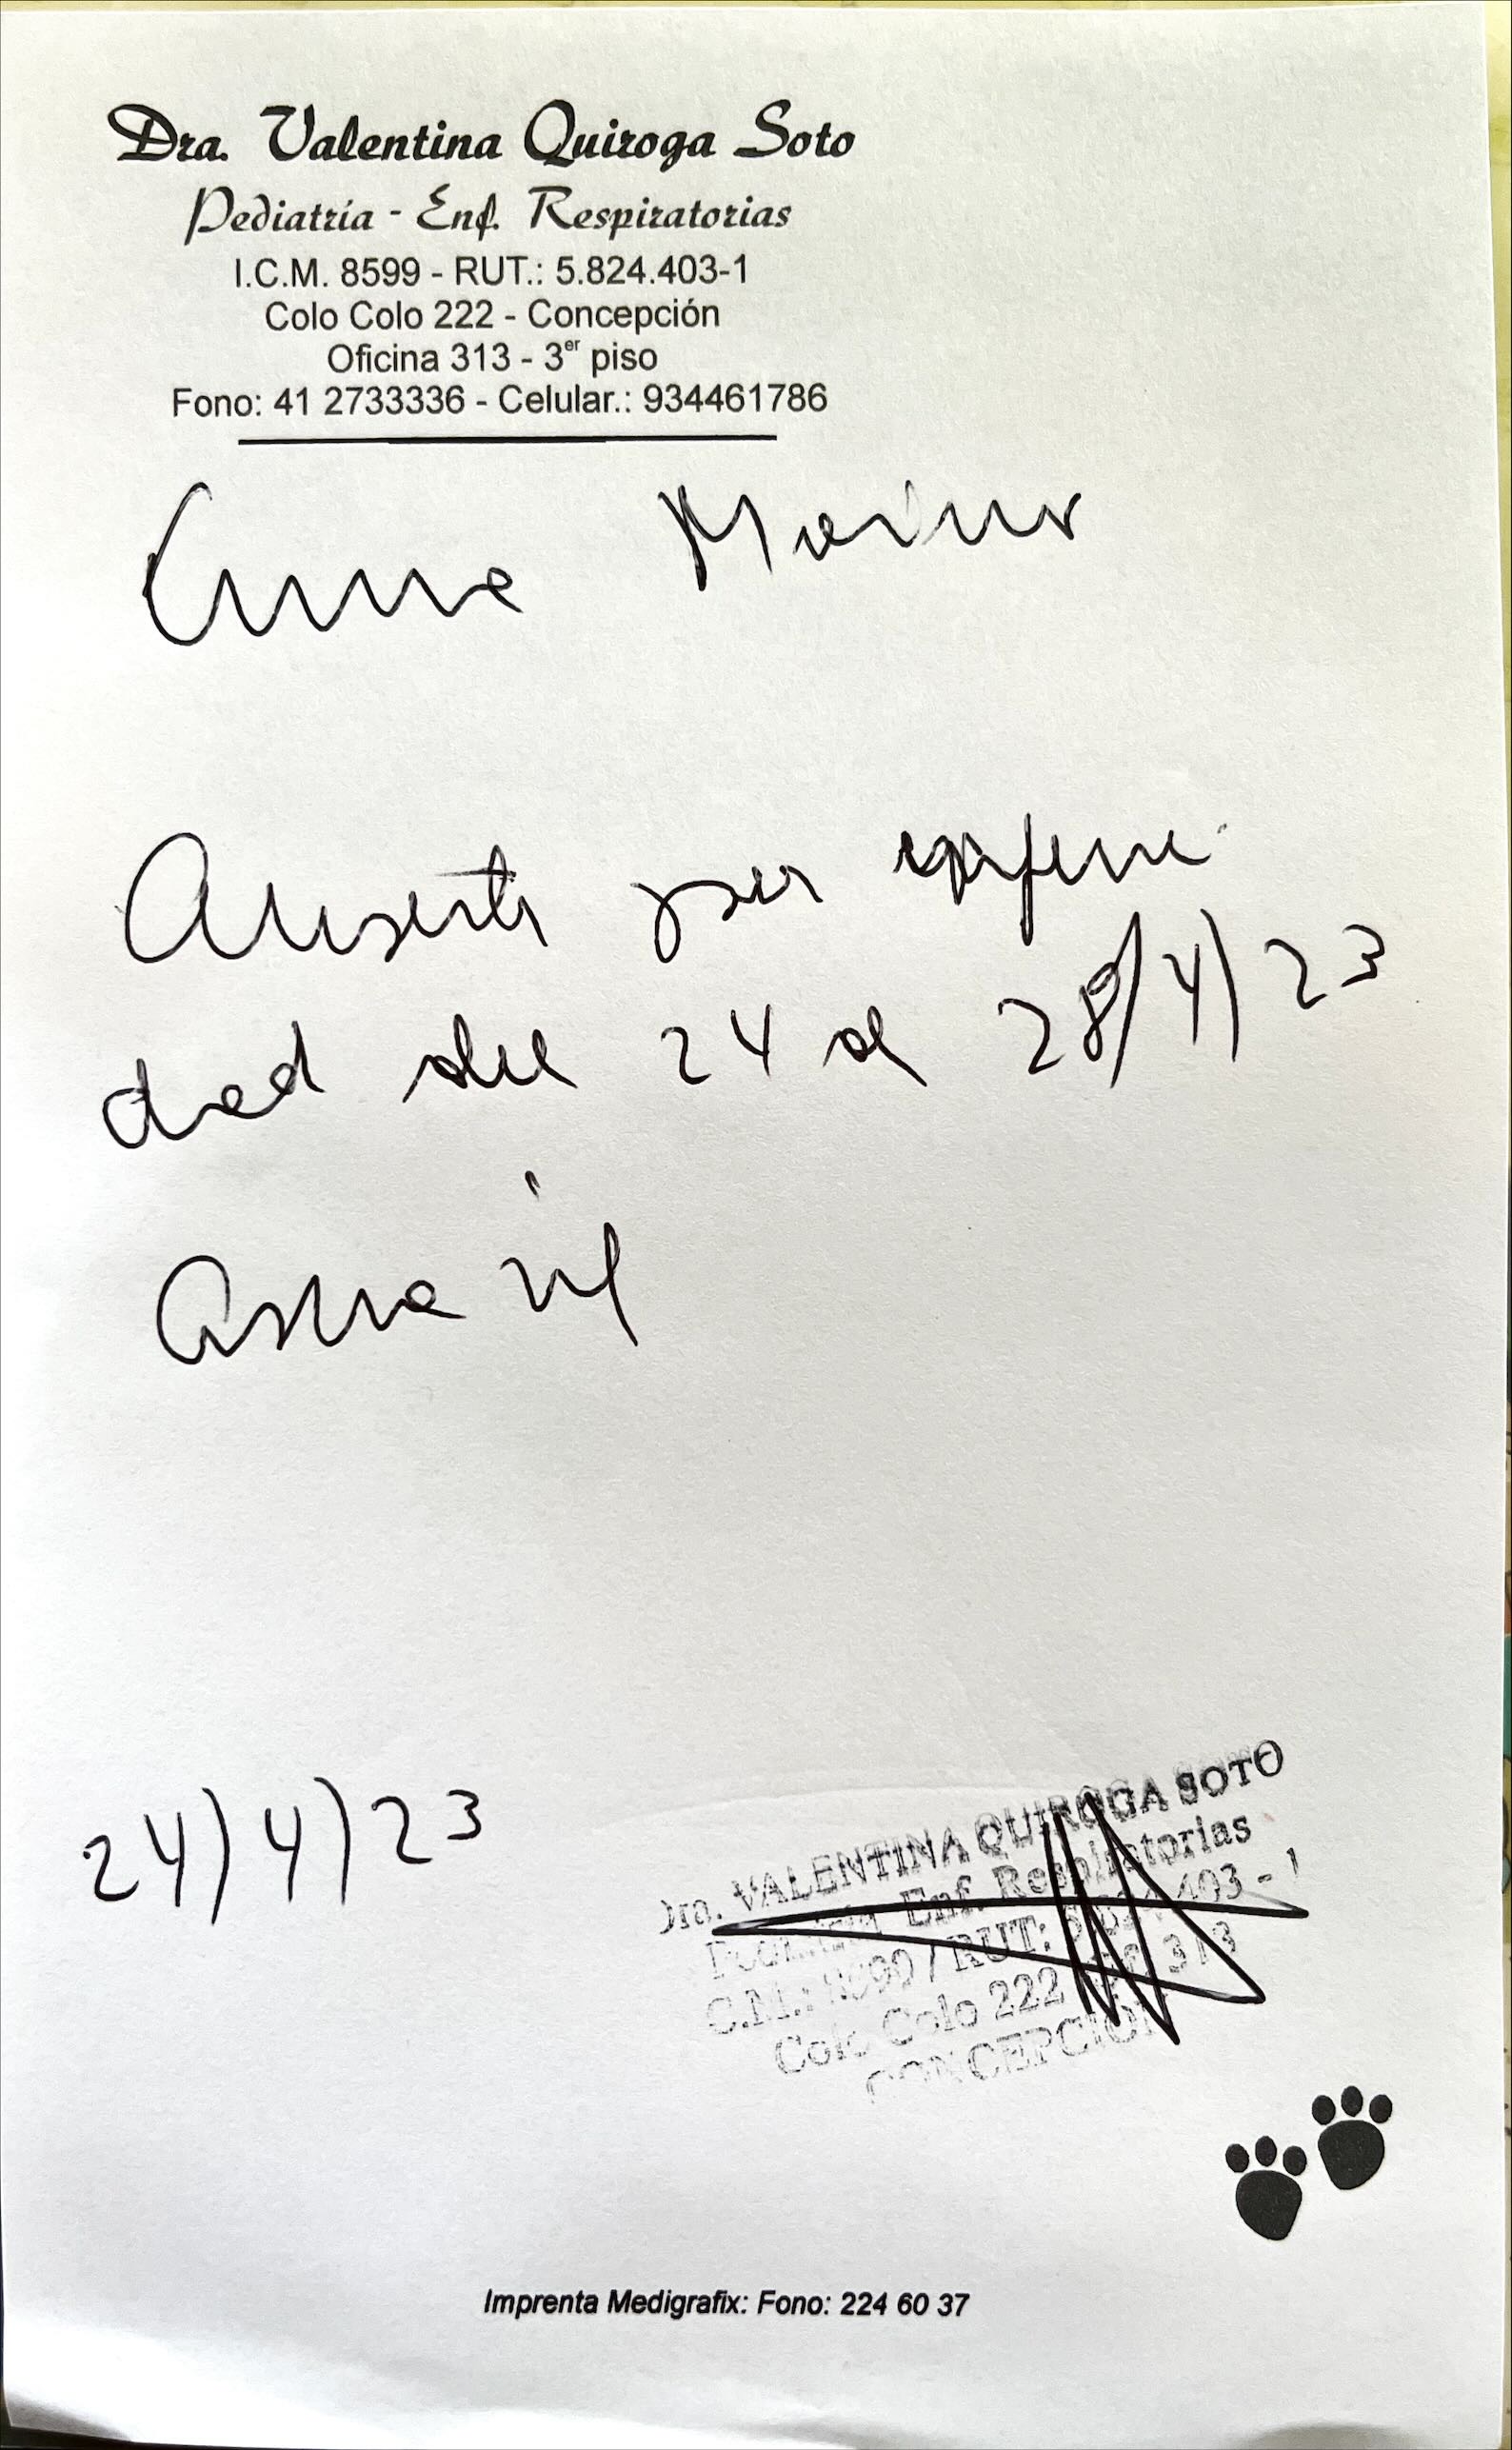 Dra. Valentina Quiroga Soto
Pediatría - Enf. Respiratorias
I.C.M. 8599 - RUT.: 5.824.403-1
Colo Colo 222 - Concepción
Oficina 313 - 3er piso
Fono: 41 2733336 - Celular.: 934461786
Ausente por enferme
dad del 24 al 28/4/23
24/4/23
Dra. VALENTINA QUIROGA SOTO
Enf. Respiratorias
RUT: 403 - 1
Colo Colo 222 313
CONCEPCIÓN
Imprenta Medigrafix: Fono: 224 60 37